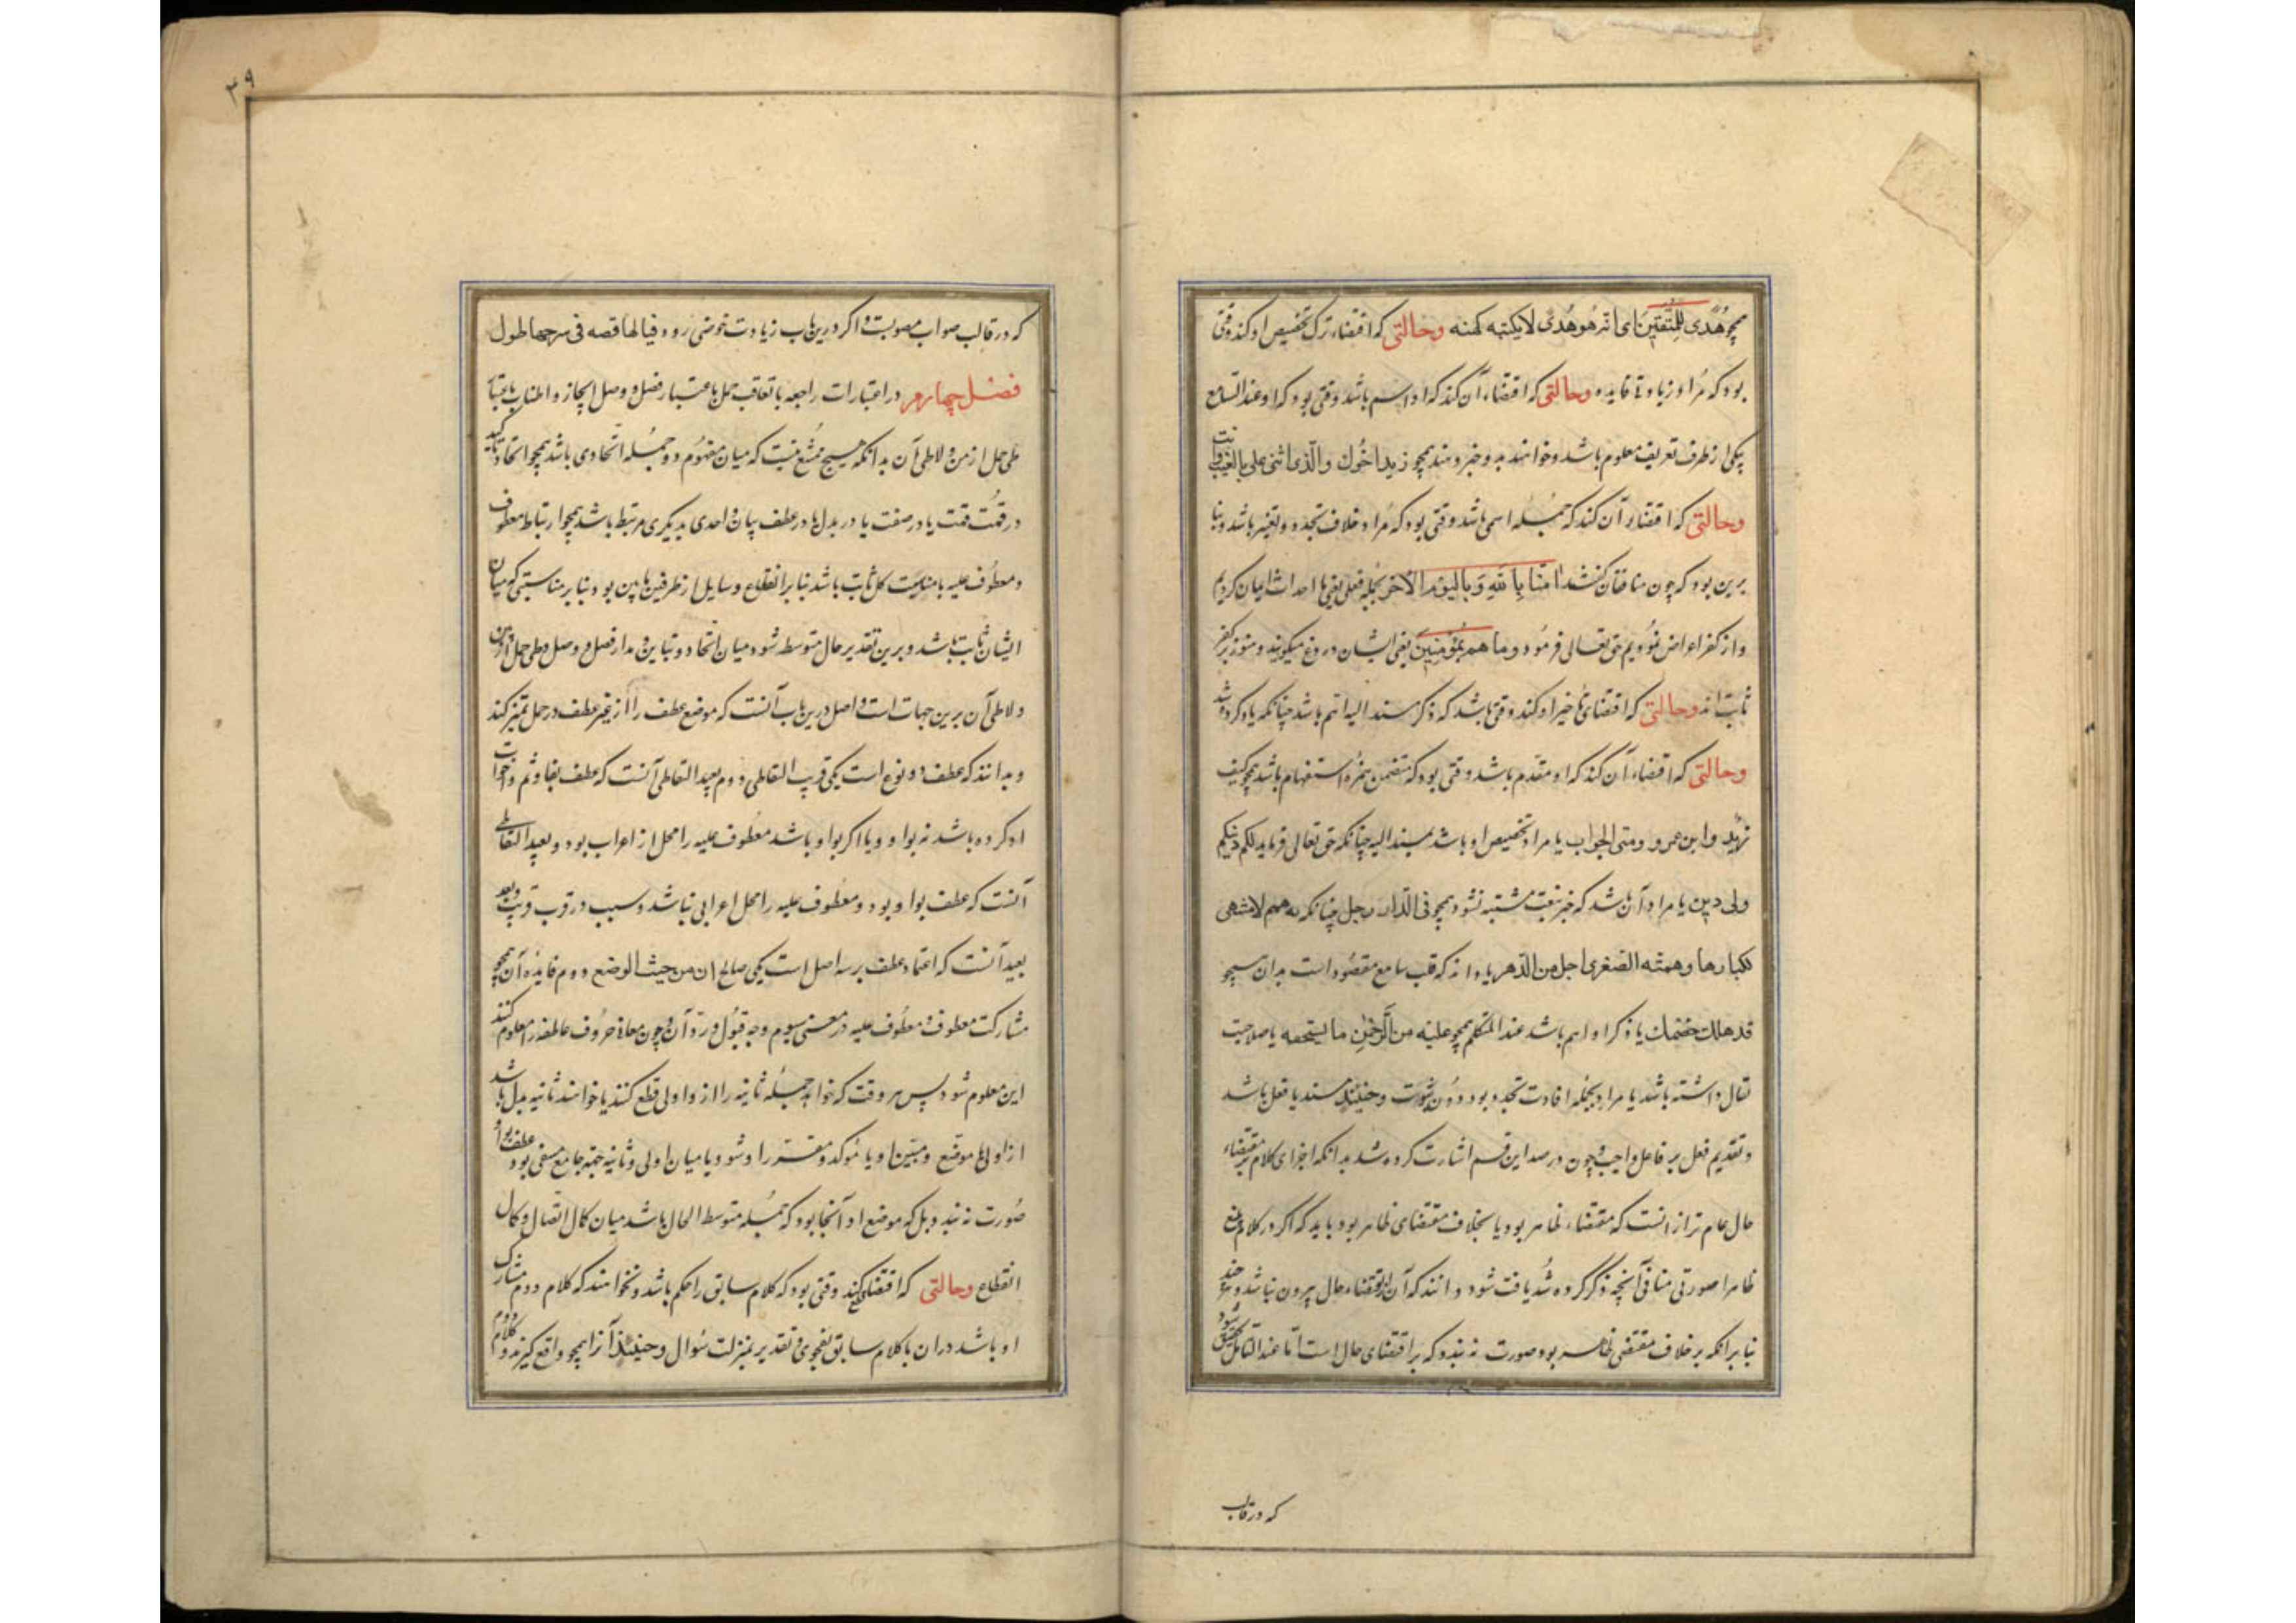 همچو هُدًی لِلْمُتَّقِینَ ای انّه هُوَ هُدًی لا یکتنه کنهه وحالتی که اقتضاء ترک تخصیص او کند وقتی
بود که مراد زیادتی فایده وحالتی که اقتضاء آن کند که او اسم باشد وقتی بود که او عند السامع
یکی از طرف تعریف معلوم باشد و خوانند بدو خبر دهند همچو زید اخوك والّذی اثنی علی بالغیب انت
وحالتی که اقتضاء آن کند که جمله اسمی باشد وقتی بود که مراد خلاف تجدد و تغیر باشد و بنا
برین بود که چون منافقان گفتند اٰمَنَّا بِاللهِ وَبِالْیَوْمِ الْاٰخِرِ بجمله فعلی یعنی ما احداث ایمان کردیم
و از کفر اعراض نمودیم حق تعالی فرمود وَمَا هُمْ بِمُؤْمِنِینَ یعنی ایشان دروغ میگویند و هنوز بر کفر
ثابت اند وحالتی که اقتضای تاخیر او کند وقتی باشد که ذکر مسند الیه اهم باشد چنانکه یاد کرده شد
وحالتی که اقتضاء آن کند که او مقدم باشد وقتی بود که متضمن همزه استفهام باشد همچو کیف
زید و این عمرو و متی الجواب یا مراد تخصیص او باشد بمسند الیه چنانکه حق تعالی فرماید لکم دینکم
ولی دین یا مراد آن باشد که خبر بنعت مشتبه نشود همچو فی الدار رجل چنانکه له همم لا منتهی
لکبارها وهمته الصغری اجل من الدهر یا داند که قلب سامع مقصود است بدان همچو
قد هلك خصمك یا ذکر او اهم باشد عند المتکلم همچو علیه من الرحمٰن ما یستحقه یا صلاحیت
تفال داشته باشد یا مراد بجمله افادت تجدد بود دون ثبوت وحینئذ مسند یا فعل باشد
و تقدیم فعل بر فاعل واجب و چون در صدر این قسم اشارت کرده شد بدانکه اجزای کلام بر مقتضاء
حال عام تر از انست که مقتضاء ظاهر بود یا بخلاف مقتضای ظاهر بود باید که اگر در کلام بلیغ
ظاهرا صورتی منافی آنچه ذکر کرده شد یافت شود دانند که آن از مقتضاء حال بیرون نباشد و هر چند
بنا بر انکه بر خلاف مقتضی ظاهر بود صورت نه بندد که بر اقتضای حال است اما عند التامل تحقیق شود
که در قالب
۳۹
که در قالب صواب مصوبست و اگر درین باب زیادت خوضی رود فیا لها قصه فی شرحها طول
فصل چهارم در اعتبارات راجعه با تعاقب جمل باعتبار فصل و وصل ایجاز و اطناب باعتبار
طی جمل از من و لاطی آن بدانکه هیچ ممتنع نیست که میان مفهوم دو جمله اتحادی باشد همچو اتحاد تاکید
و معطوف علیه یا مناسبت کل ثابت باشد بنا بر انقطاع وسایل از طرفین باین بود و بنا بر مناسبتی که میان
ایشان ثابت باشد و برین تقدیر حال متوسط شود میان اتحاد و تباین و مدار فصل و وصل و طی جمل از من
و لاطی آن برین جهات است و اصل درین باب آنست که موضع عطف را از غیر عطف در جمل تمیز کند
و بدانند که عطف دو نوع است یکی قریب التعاطی دوم بعید التعاطی آنست که عطف بفا و ثم و اخوات
او کرده باشد نه بواو و یا اگر بواو باشد معطوف علیه را محل از اعراب بود و بعید التعاطی
آنست که عطف بواو بود و معطوف علیه را محل اعرابی نباشد و سبب در قرب قریب و بعد
بعید آنست که اعتماد عطف بر سه اصل است یکی صالح ان من حیث الوضع دوم فایده آن همچو
مشارکت معطوف و معطوف علیه در معنی سیوم وجه قبول و رد آن و چون معانی حروف عاطفه را معلوم کنند
این معلوم شود پس هر وقت که خواهد جمله ثانیه را از واو اولی قطع کنند یا خوانند ثانیه بدل باشد
از اولی یا موضح و مبین او یا موکد و مقرر او شود و یا میان اولی و ثانیه جهة جامع منفی بود عطف بواو
صورت نه بندد بل که موضع او آنجا بود که جمله متوسط الحال باشد میان کمال اتصال و کمال
انقطاع وحالتی که اقتضای قطع کند وقتی بود که کلام سابق را حکم باشد و نخوانند که کلام دوم مشارک
او باشد در ان یا کلام سابق بفحوی و تقدیر بمنزلت سؤال و حینئذ آنرا همچو واقع گیرند و کلام دوم